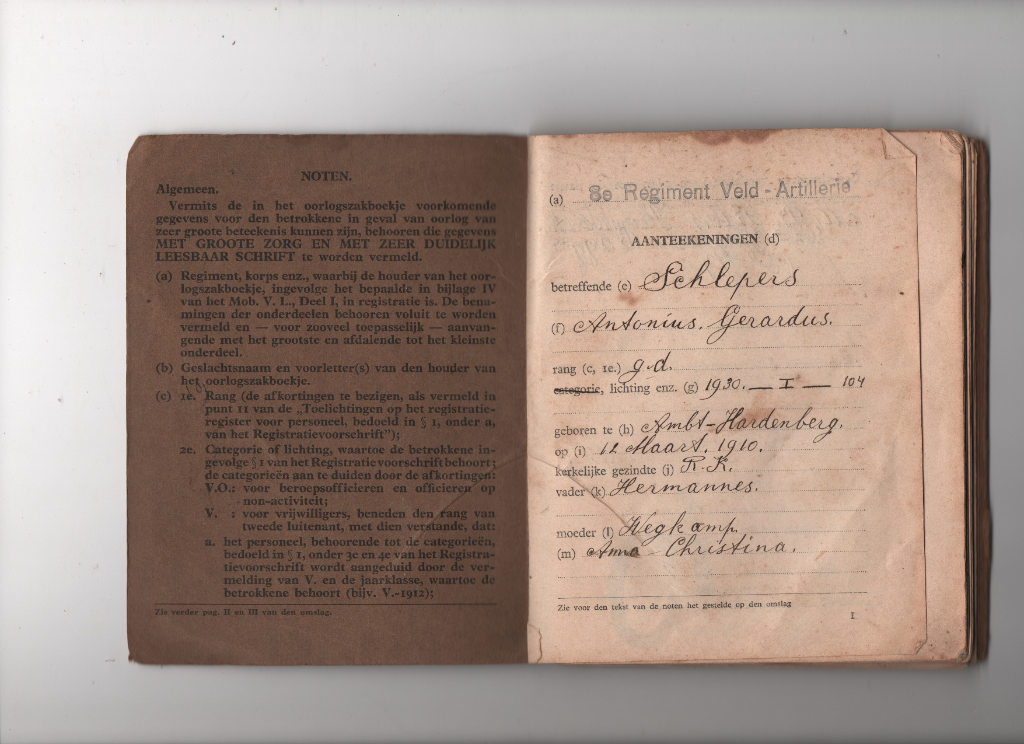 NOTEN.
Algemeen.
Vermits de in het oorlogszakboekje voorkomende
gegevens voor den betrokkene in geval van oorlog van
zeer groote beteekenis kunnen zijn, behooren die gegevens
MET GROOTE ZORG EN MET ZEER DUIDELIJK
LEESBAAR SCHRIFT te worden vermeld.
(a) Regiment, korps enz., waarbij de houder van het oor-
logszakboekje, ingevolge het bepaalde in bijlage IV
van het Mob. V. L., Deel I, in registratie is. De bena-
mingen der onderdeelen behooren voluit te worden
vermeld en — voor zooveel toepasselijk — aanvan-
gende met het grootste en afdalende tot het kleinste
onderdeel.
(b) Geslachtsnaam en voorletter(s) van den houder van
het oorlogszakboekje.
(c) 1e. Rang (de afkortingen te bezigen, als vermeld in
punt 11 van de „Toelichtingen op het registratie-
register voor personeel, bedoeld in § 1, onder a,
van het Registratievoorschrift");
2e. Categorie of lichting, waartoe de betrokkene in-
gevolge § 1 van het Registratievoorschrift behoort;
de categorieën aan te duiden door de afkortingen:
V.O.: voor beroepsofficieren en officieren op
non-activiteit;
V. : voor vrijwilligers, beneden den rang van
tweede luitenant, met dien verstande, dat:
a. het personeel, behoorende tot de categorieën,
bedoeld in § 1, onder 3e en 4e van het Registra-
tievoorschrift wordt aangeduid door de ver-
melding van V. en de jaarklasse, waartoe de
betrokkene behoort (bijv. V.-1912);
Zie verder pag. II en III van den omslag.
(a) 8e Regiment Veld-Artillerie
AANTEEKENINGEN (d)
betreffende (e) Schlepers
(f) Antonius. Gerardus.
rang (c, 1e.) g.d.
categorie, lichting enz. (g) 1930. — I — 104
geboren te (h) Ambt-Hardenberg.
op (i) 12 Maart. 1910.
kerkelijke gezindte (j) R.K.
vader (k) Hermannes.
moeder (l) Wegkamp.
(m) Anna Christina.
Zie voor den tekst van de noten het gestelde op den omslag
1